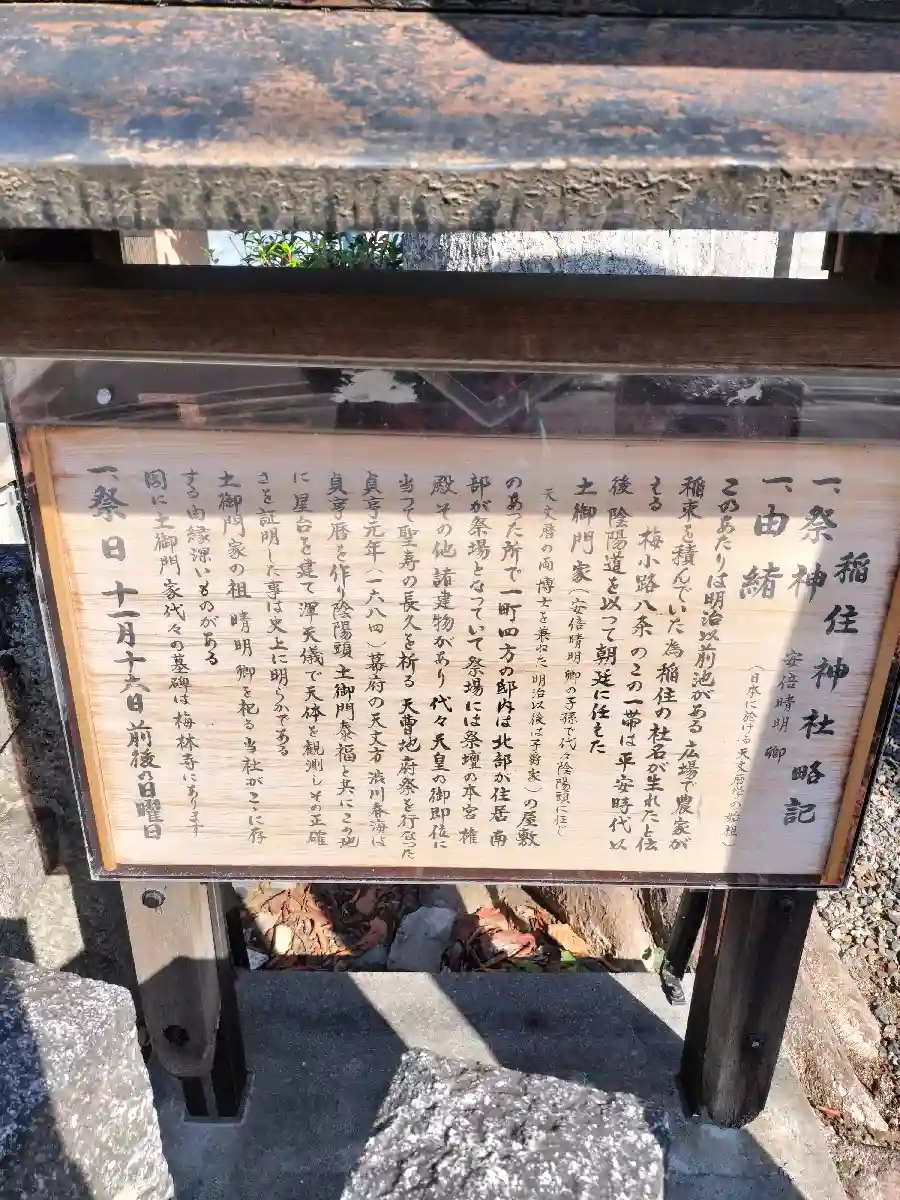 稲住神社略記
一、祭神 安倍晴明 卿
(日本に於ける天文暦学の始祖)
一、由緒
このあたりは明治以前池がある 広場で農家が
稲束を積んでいた為 稲住の社名が生れたと伝
える 梅小路八条 のこの一帯は平安時代以
後 陰陽道を以って朝廷に仕えた
土御門家(安倍晴明 卿の子孫で代々陰陽頭に任じ
天文暦の両博士を兼ねた 明治以後は子爵家)の屋敷
のあった所で一町四方の邸内は北部が住居 南
部が祭場となっていて 祭場には祭壇の本宮 権
殿 その他 諸建物があり 代々天皇の御即位に
当って聖寿の長久を祈る 天曹地府祭を行なった
貞享元年(一六八四)幕府の天文方 渋川春海は
貞享暦を作り陰陽頭 土御門泰福と共にこの地
に 星台を建て 渾天儀で天体を観測しその正確
さを証明した事は史上に明らかである
土御門家の祖 晴明 卿を祀る当社がここに存
する由縁深いものがある
因に土御門家代々の墓碑は梅林寺にあります
一、祭日 十一月十六日 前後の日曜日